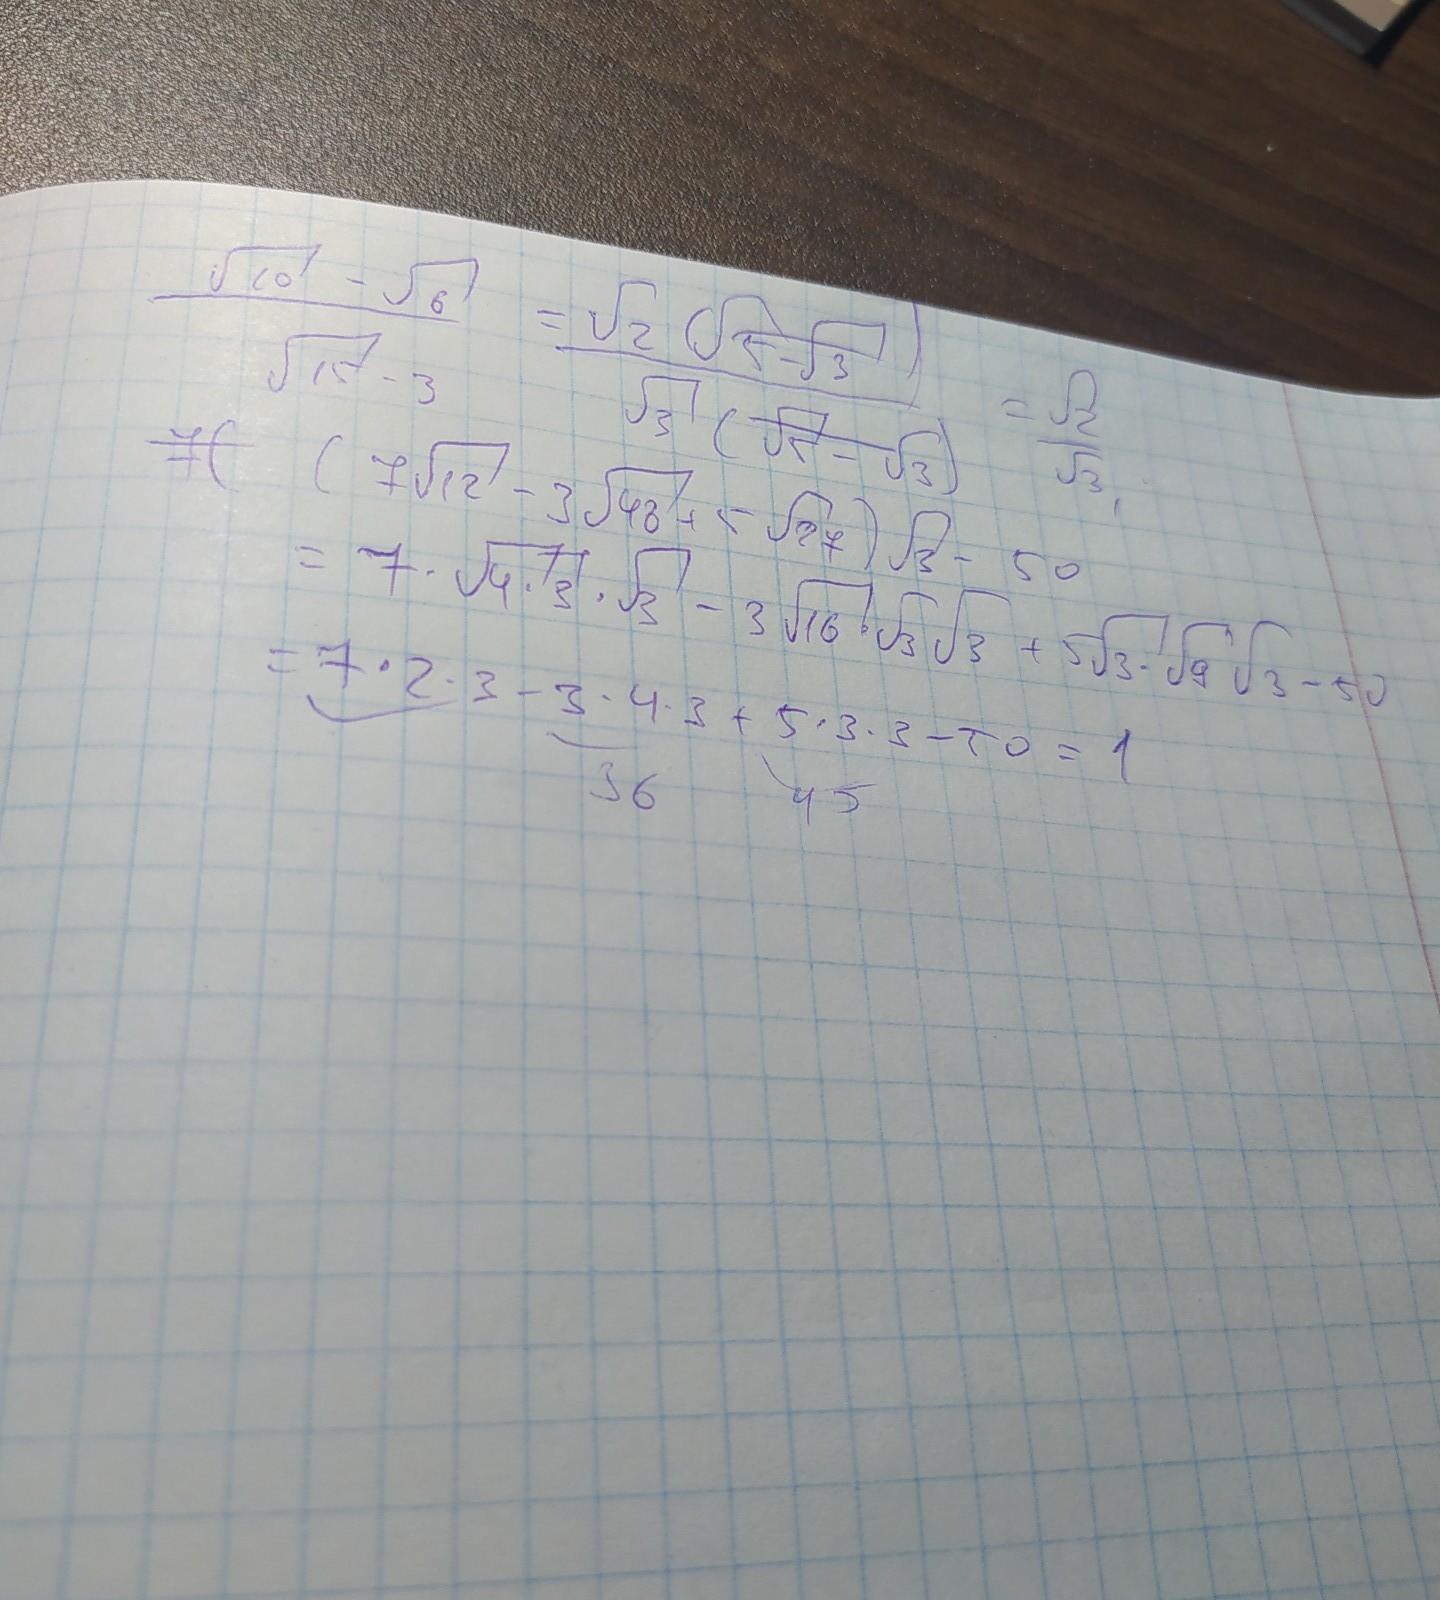 (√10 - √6)/(√15 - 3) = √2(√5 - √3)/√3(√5 - √3) = √2/√3,
7( (7√12 - 3√48 + 5√27)√3 - 50
= 7·√4·3·√3 - 3√16·√3√3 + 5√3·√9√3 - 50
= 7·2·3 - 3·4·3 + 5·3·3 - 50 = 1
36 45